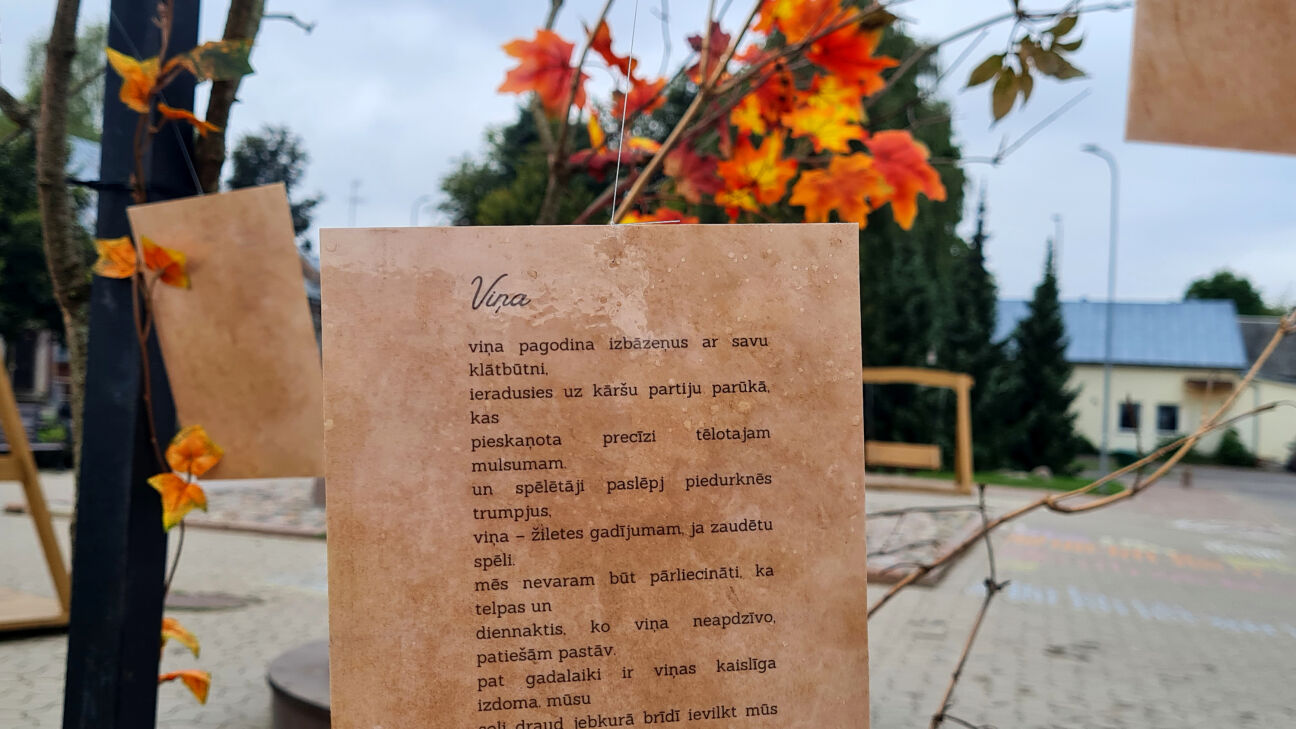 Viņa
viņa pagodina izbāzeņus ar savu
klātbūtni,
ieradusies uz kāršu partiju parūkā,
kas
pieskaņota precīzi tēlotajam
mulsumam.
un spēlētāji paslēpj piedurknēs
trumpjus,
viņa – žiletes gadījumam, ja zaudētu
spēli.
mēs nevaram būt pārliecināti, ka
telpas un
diennaktis, ko viņa neapdzīvo,
patiešām pastāv.
pat gadalaiki ir viņas kaislīga
izdoma. mūsu
soļi draud jebkurā brīdī ievilkt mūs